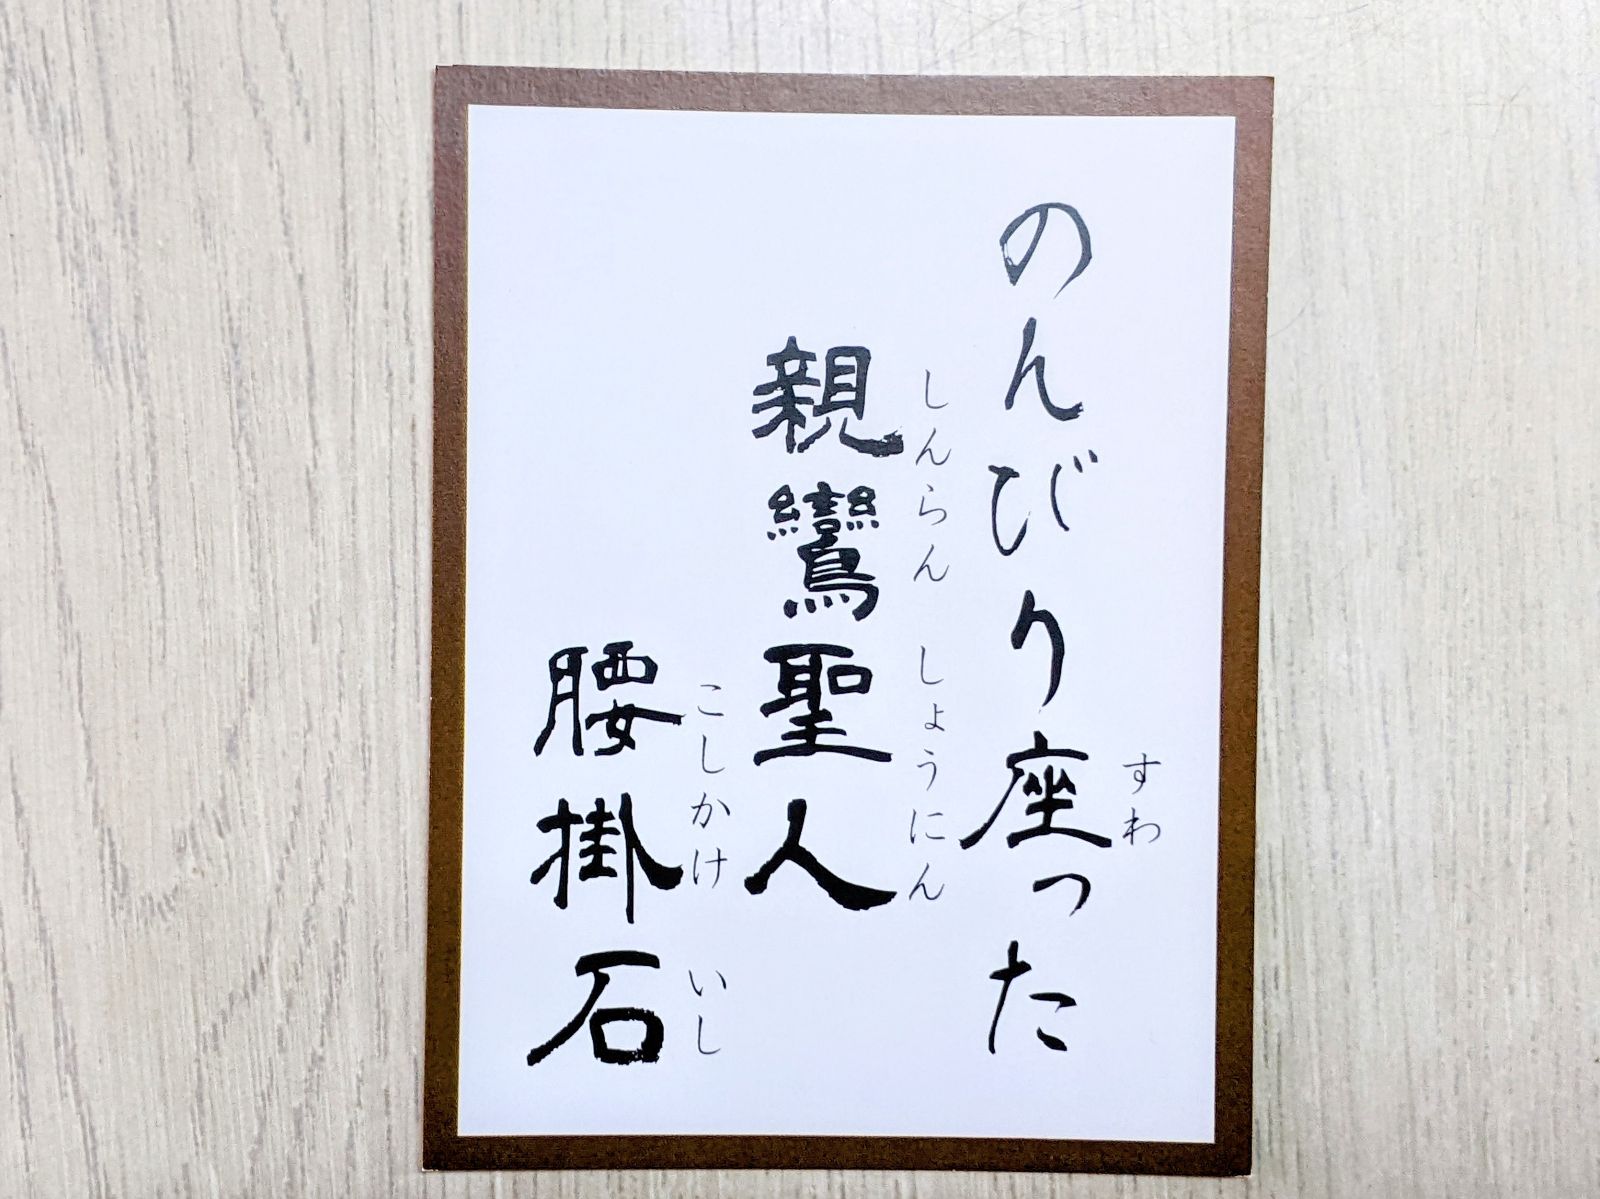 のんびり座った
すわ
親鸞聖人
しんらん しょうにん
腰掛石
こしかけ いし